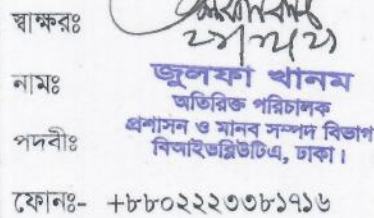 স্বাক্ষরঃ
নামঃ জুলফা খানম
অতিরিক্ত পরিচালক
পদবীঃ প্রশাসন ও মানব সম্পদ বিভাগ
বিআইডব্লিউটিএ, ঢাকা।
ফোনঃ- +৮৮০২২২৩৩৮১৭১৬